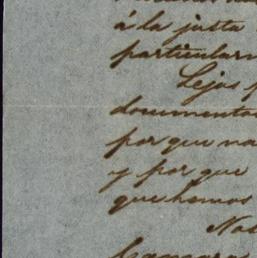 á la justa
particularm
Lejos p
documentos
por que na
y por que
que hemos
Nos